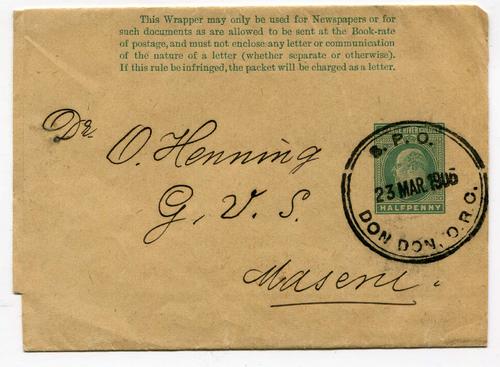 This Wrapper may only be used for Newspapers or for
such documents as are allowed to be sent at the Book-rate
of postage, and must not enclose any letter or communication
of the nature of a letter (whether separate or otherwise).
If this rule be infringed, the packet will be charged as a letter.
Dr. O. Henning
G. V. S.
Maseru.
ORANGE RIVER COLONY
HALFPENNY
S. P. O.
23 MAR. 1906
DON DON, O.R.C.